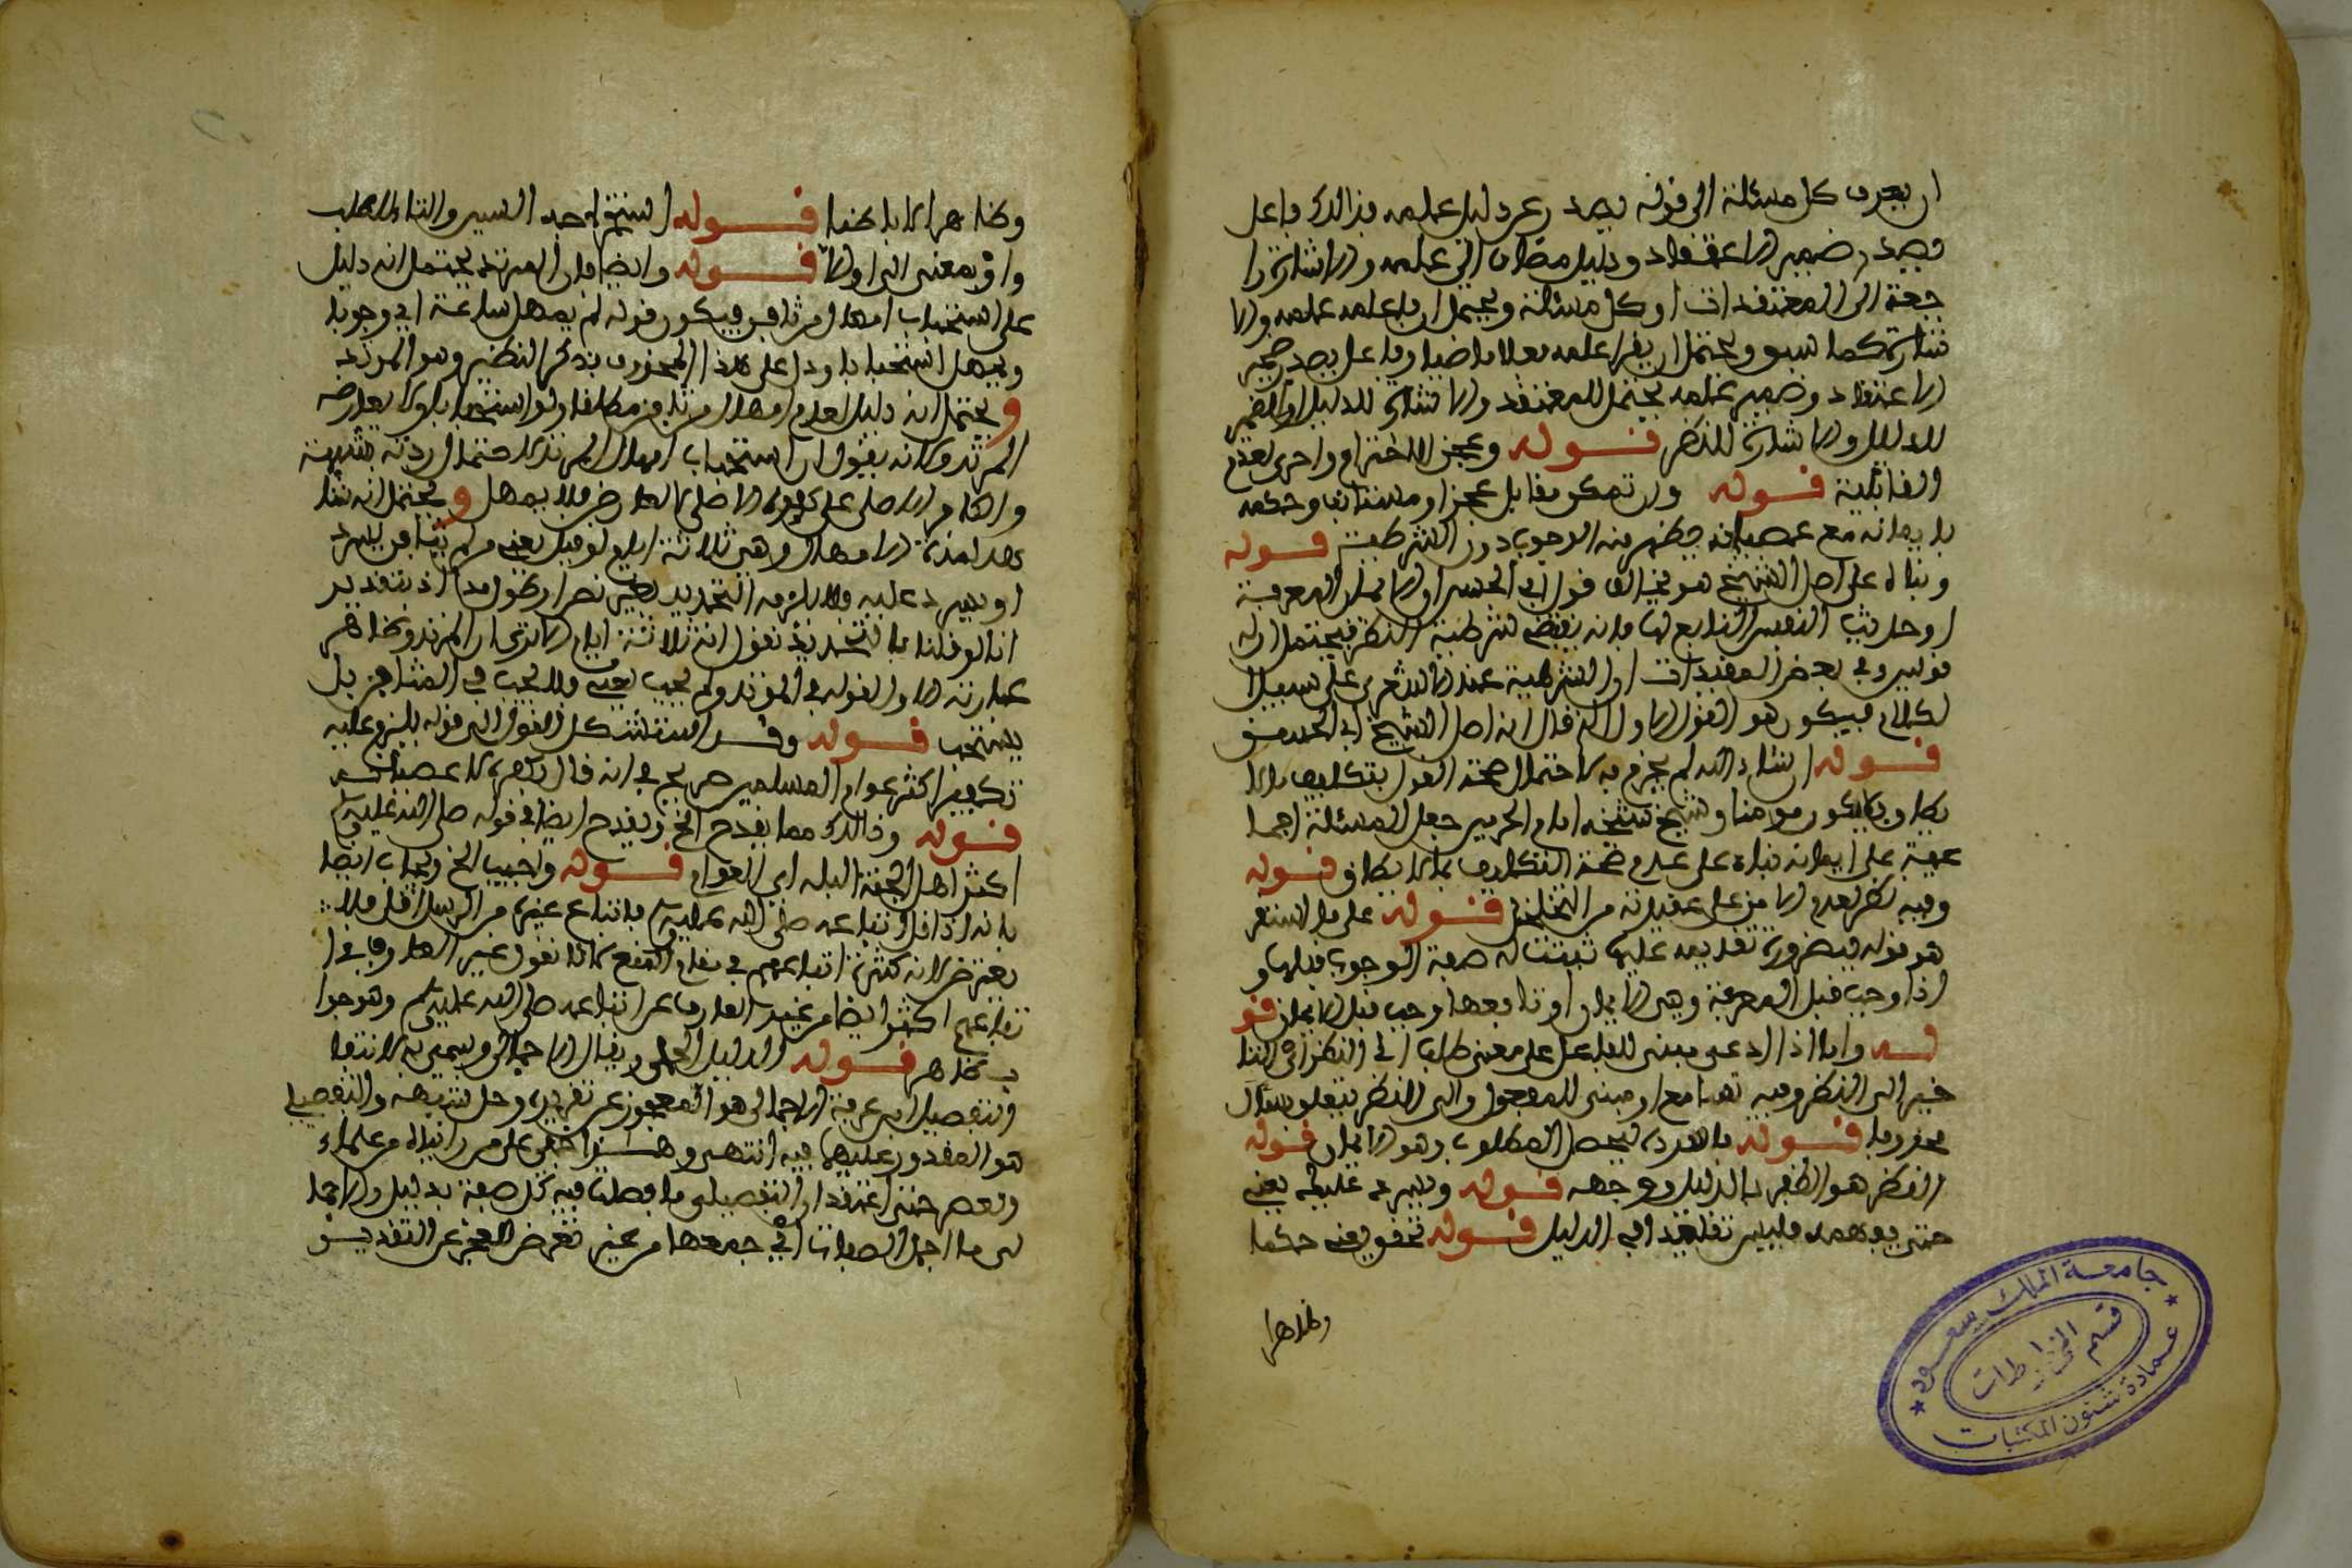 ان يعرف كل مسئلة الى قوله يصدر عن دليل علمه بذالك فاعل
يصدر ضمير الاعتقاد ودليل مضاف الى علمه والاشارة را
جعة الى المعتقدات او كل مسئلة ويحتمل ان فاعله علمه والا
شارة كما سبق ويحتمل ان يقرا علمه فعلا ماضيا وفاعل يصدر ضمير
الاعتقاد وضمير علمه يحتمل للمعتقد والاشارة للدليل او الضمير
للدليل والاشارة للنظر قوله وعجز للاخترام واحرى لعدم
القابلية قوله وان تمكن مقابل عجز او مستانف وحكمه
بايمانه مع عصيانه يظهر منه الوجوب دون الشرطية قوله
وبناه على اصل الشيخ هو يخالف قول ابي الحسن ان الايمان المعرفة
او حديث النفس التابع لها فانه يقتضي شرطية النظر فيحتمل ان له
قولين وفي بعض المقيدات ان الشرطية عند الاشعري على سبيل ا
لكمال فيكون هو القول الاول لانه قال انه اصل الشيخ ابي الحسن
قوله ان شاء الله لم يجزم به لاحتمال صحة القول بتكليف ما لا
يطاق فلا يكون مومنا وشيخ شيخه امام الحرمين جعل المسئلة اجما
عية على ايمانه بناء على عدم صحة التكليف بما لا يطاق قوله
وفيه نظر لعدم الامن على عقيدته من التخلخل قوله على ما استقر
هو قوله فبضرورة تقديمه عليها ثبتت له صفة الوجوب قبلها و
اذا وجب قبل المعرفة وهي الايمان او تابعها وجب قبل الايمان قو
له واما اذا ادعى مبنى للفاعل على معنى طلب اي النظر اي التا
خير الى النظر وفيه تسامح او مبنى للمفعول والى النظر يتعلق بسؤال
محذوف قوله ما تقرره ليحصل المطلوب وهو الايمان قوله
النظر هو الظفر بالدليل ووجهه قوله ويسرد عليه يعني
حتى يفهمه فليس تقليدا في الدليل قوله تحقق يعني حكما
وظاهرا
وظاهرا لا باطنا قوله استتيب احد السين والتاء للطلب
واو بمعنى الى اولا قوله وايضا فان المرتد يحتمل انه دليل
على استحباب امهال من ثافن فيكون قوله لم يمهل ساعة اي وجوبا
ويمهل استحبابا ودل على هذا المحذوف بذكر النظير وهو المرتد
ويحتمل انه دليل لعدم امهال من ثافن مطلقا ولو استحبابا ولا يعارضه
المرتد ولانه يقول ان استحباب امهال المرتد لاحتمال ردته بشبهة
والكافر الاصلي على كفره الاصلي لا لعارض فلا يمهل ويحتمل انه شا
هد لمدة الامهال وهي ثلاثة ايام لو قيل يعني من لم يثافن يسرد
او يسرد عليه ولا يلزمه التحديد بغير نص او طول مدة اذ بتقدير
انا لو قلنا بالتحديد نقول انه ثلاثة ايام الا ترى ان المرتد وظاهر
عبارته الاول لقوله في المرتد ولم يجب يعني ولا يجب في المثافن بل
يستحب قوله وقد استشكل القول الى قوله يلزم عليه
تكفير اكثر عوام المسلمين صريح في انه قال بكفره لا عصيانه
قوله وذالك مما يقدح الخ ويقدح ايضا في قوله صلى الله عليه وسلم
اكثر اهل الجنة البله اي العوام قوله واجيب الخ ويجاب ايضا
بانه اذا قل اتباعه صلى الله عليه وسلم فاتباع غيره من الرسل اقل فلا
يعترض لانه كثرة اتباعهم في مقام النفع كما لا نقول غير العارف في ا
تباعهم اكثر ايضا من غير العارف من اتباعه صلى الله عليه وسلم وهو جوا
ب ظاهر قوله الدليل الجملي ويقال الاجمالي ويسمى به لانتفا
التفصيل ابن عرفة الاجمالي هو المعجوز عن تقريره وحل شبهه والتفصيلي
هو المقدور عليهما فيه انتهى وهذا خفي على من رايناه من علماء
العصر حتى اعتقد ان التفصيلي ما فصلت فيه كل صفة بدليل والاجما
لي ما اجمل الصفات اي جمعها من غير تعرض للعجز عن التقدير
جامعة الملك سعود
قسم المخطوطات
عمادة شئون المكتبات